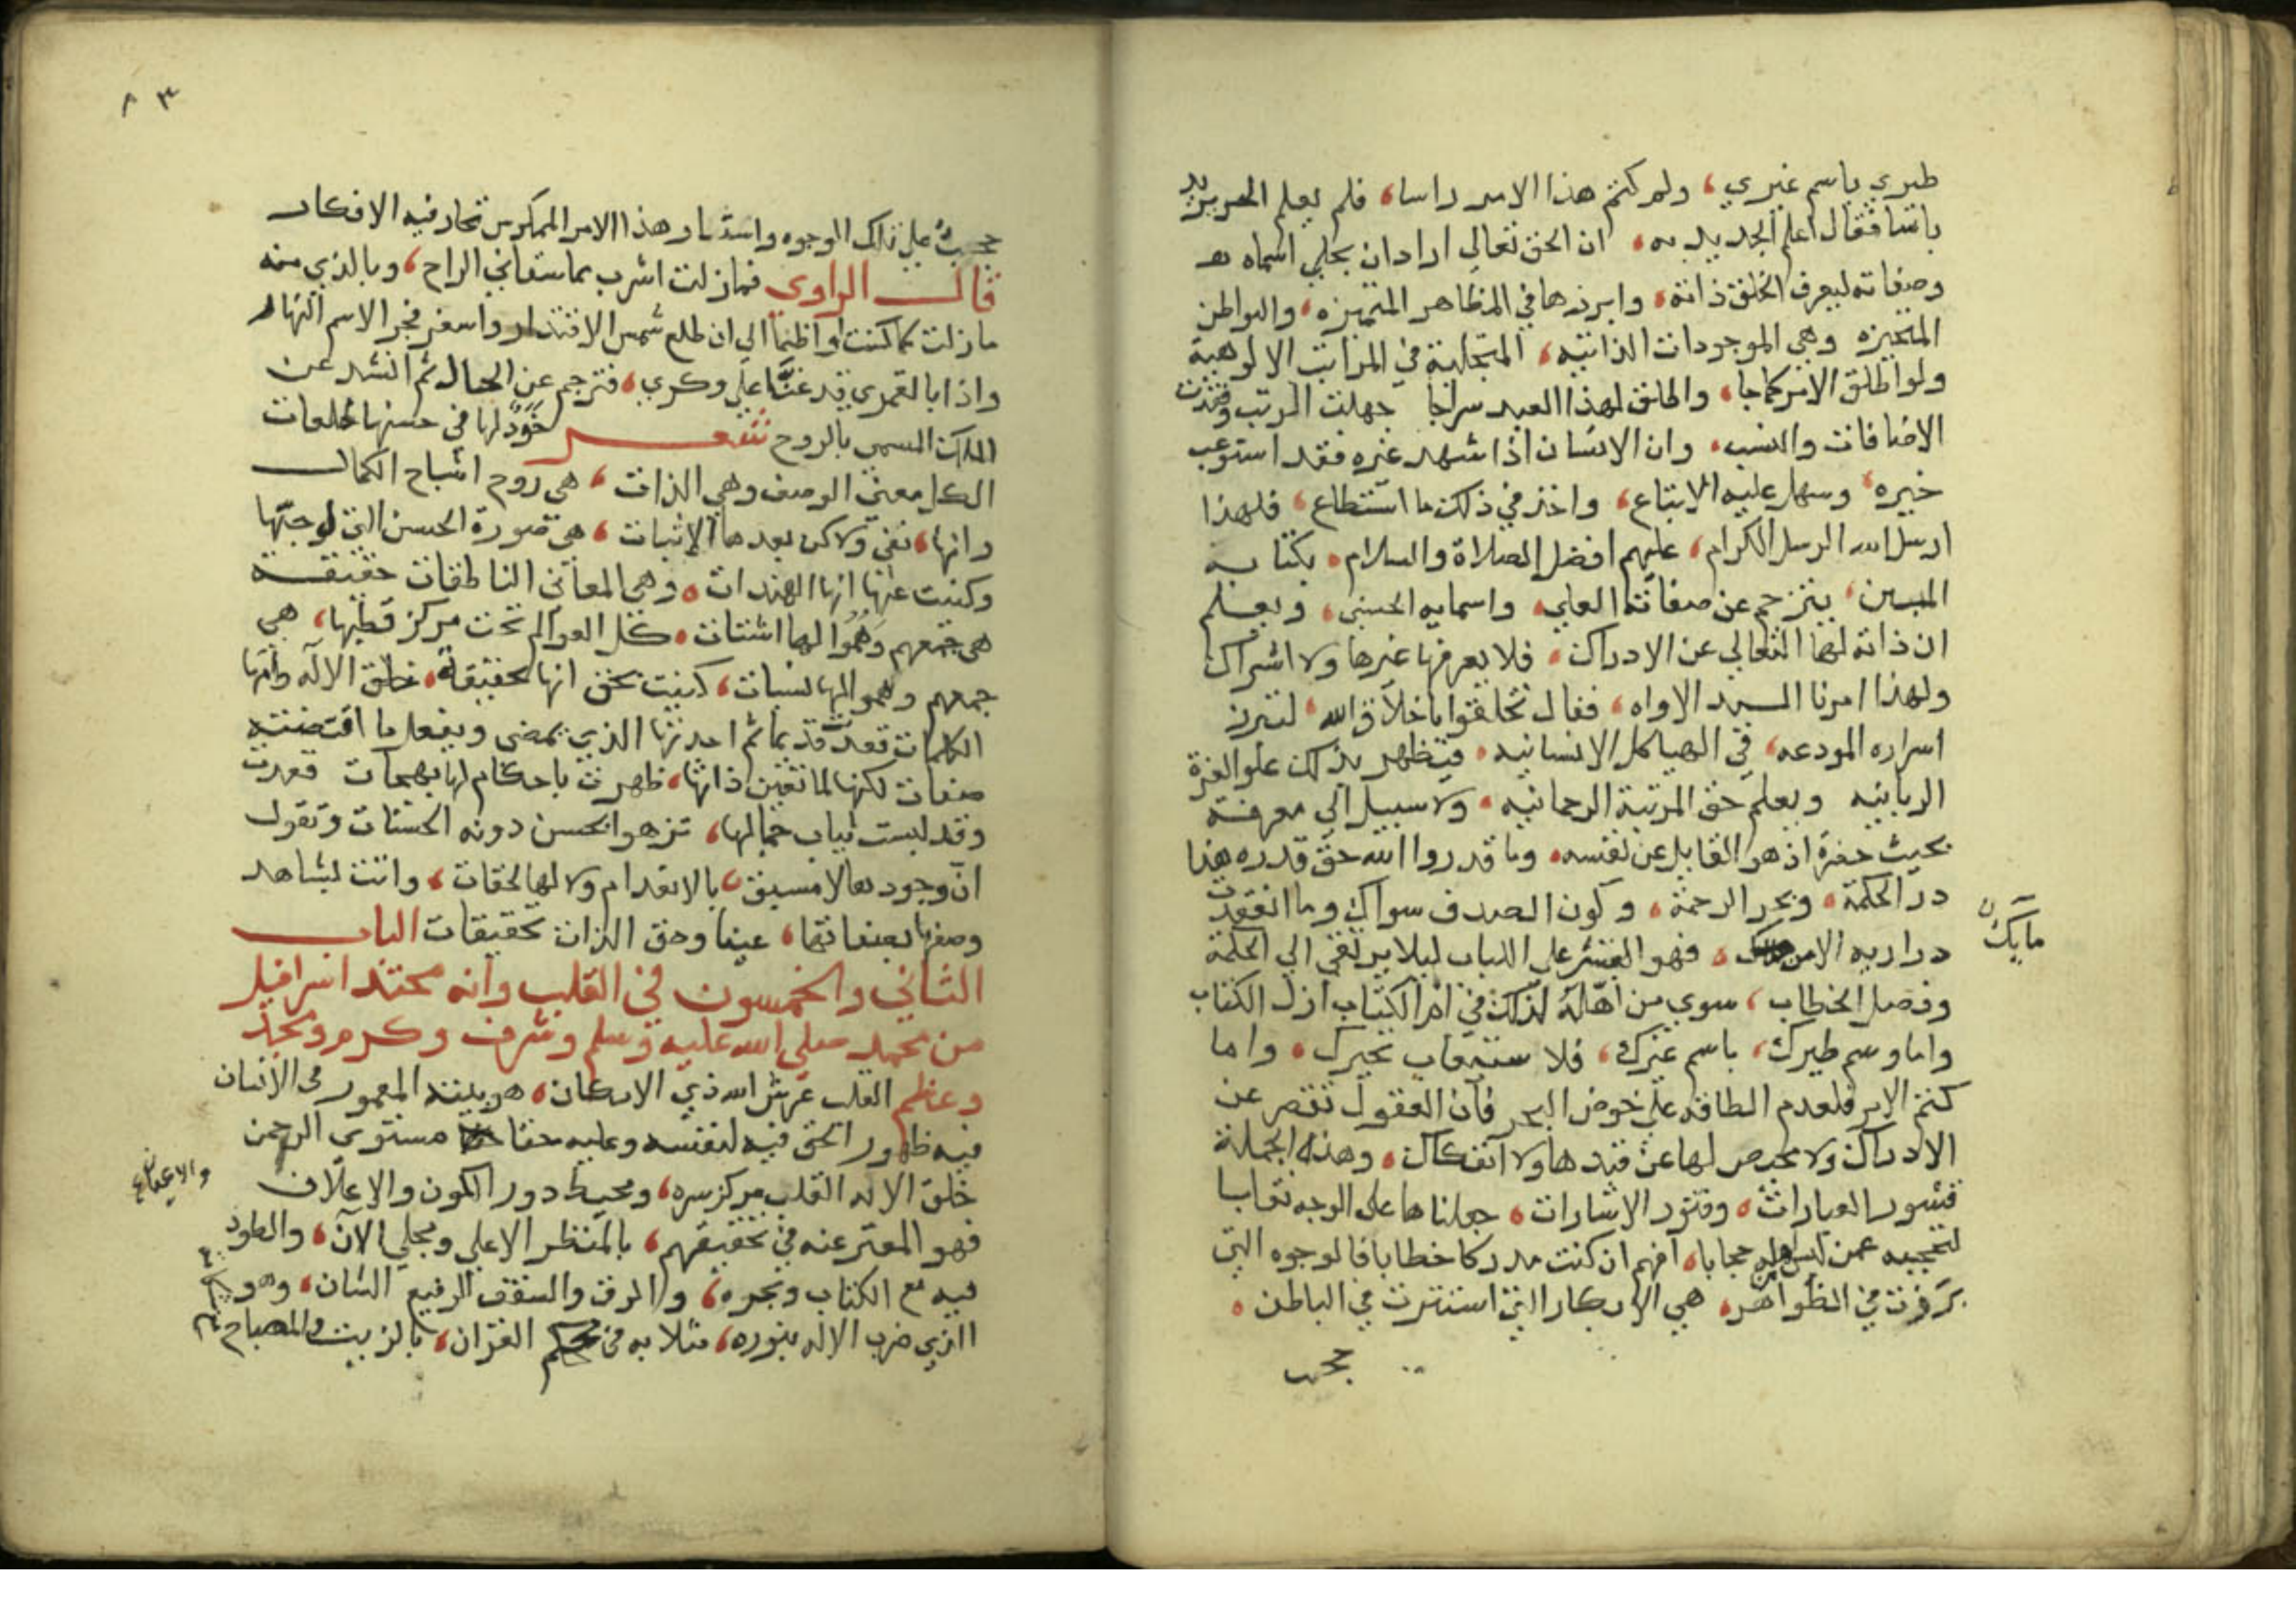 طيري باسم غيري، ولم كتم هذا الامر راسا، فلم يعلم المريد
باسا فقال اعلم ان الحق تعالي اراد ان يجلي اسماه
وصفاته ليعرف الخلق ذاته، وابرزها في المظاهر المتميزه، والبواطن
المتحيزه وهي الموجودات الذاتيه، المتجلية في المراتب الالوهية
ولو اطلق الامر كما جا، واطلق لهذا العبد سراجا جهلت الرتب وفقدت
الاضافات والنسب، وان الانسان اذا شهد غيره فقد استوعب
خيره، وسهل عليه الاتباع، واخذ في ذلك ما استطاع، فلهذا
ارسل الله الرسل الكرام، عليهم افضل الصلاة والسلام، بكتابه
المبين، يترجم عن صفاته العلي، واسمايه الحسني، ويعلم
ان ذاته لها التعالي عن الادراك، فلا يعرفها غيرها ولا اشراك
ولهذا امرنا السيد الاواه، فقال تخلقوا باخلاق الله، لتبرز
اسراره المودعه، في الهياكل الانسانيه، فيظهر بذلك علو العزة
الربانيه ويعلم حق المرتبة الرحمانيه، ولا سبيل الي معرفته
بحيث حضرة اذ هو القايل عن نفسه، وما قدروا الله حق قدره هذا
در الحكمة، وبحر الرحمة، وكون الصدف سواك وما انعقدت
دراريه الا من مايك، فهو القشر علي اللباب ليلا يرتقي الي الحكمة
وفصل الخطاب، سوي من اهله لذلك في ام الكتاب ازل الكتاب
واما وسم طيرك، باسم غيرك، فلا ستيعاب خيرك، واما
كتم الامر فلعدم الطاقه علي خوض البحر فان العقول تقصر عن
الادراك ولا محيص لها عن قيدها ولا انفكاك، وهذه الجملة
قشور العبارات، وقتور الاشارات، جعلناها علي الوجه نقابا
لتحجبه عمن ليس من اهله حجابا، افهم ان كنت مدركا خطابا فالوجوه التي
برزت في الظواهر، هي الابكار التي استترت في الباطن،
حجب
٨٣
حجبٌ علي تلك الوجوه واستار هذا الامر المحكر من تحار فيه الافكار
قال الراوي فمازلت اشرب بما سقاني الراح، وبالذي منه
مازلت كما كنت اواظبها الي ان طلع شمس الاقتدار واسفر فجر الاسم النهار
واذا بالقمري قد غنَّا علي وكري، فترجم عن الحال ثم انشد عن
الملك المسمي بالروح شعر خَوَدٌ لها في حسنها طلعات
الكل معني الوصف وهي الذات، هي روح اشباح الكمال
وانها، نفي ولاكن بعدها الاثبات، هي صورة الحسن التي لوحتها
وكنيت عنها انها الهندات، وهي المعاني الناطقات حقيقة
هي جمعهم وَهُمُوا لها اشتات، كل العوالم تحت مركز قطبها، هي
جمعهم وهموا لها نسبات، كنيت بحق انها لحقيقة، خلق الاله وانها
الكلمات قعدت قديما ثم احدثها الذي يمضي ويفعل ما اقتضته
صفات لكنها لما تعين ذاتها، ظهرت باحكام لها بهجات قعدت
وقد لبست ثياب جمالها، تزهوا بحسن دونه الحسنات وتقول
ان وجودها لا مسبق، بالانعدام ولا لها لحقات، وانت لشاهد
وصفها بصفاتها، عينا وحق الذات تحقيقات الباب
الثاني والخمسون في القلب وانه محتد اسرافيل
من محمد صلي الله عليه وسلم وشرف وكرم ومجد
وعظم القلب عرش الله ذي الامكان، هو بيته المعمور في الانسان
فيه ظهور الحق فيه لنفسه وعليه حقا مستوي الرحمن
خلق الاله القلب مركز سره، ومحيط دور الكون والاعلان
والاعيان
فهو المعبر عنه في تحقيقهم، بالمنظر الاعلي ومجلي الآن، والطود
فيه مع الكتاب وبحره، والرق والسقف الرفيع الشان، وهو
الذي ضرب الاله بنوره، مثلا به في محكم القران، بالزيت والمصباح